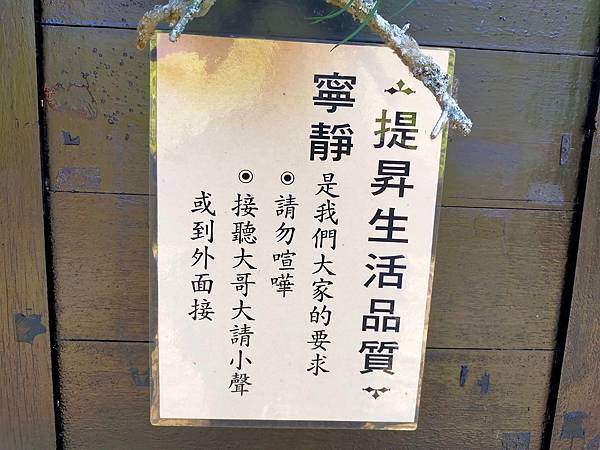 提昇生活品質
寧靜是我們大家的要求
◉請勿喧嘩
◉接聽大哥大請小聲
或到外面接